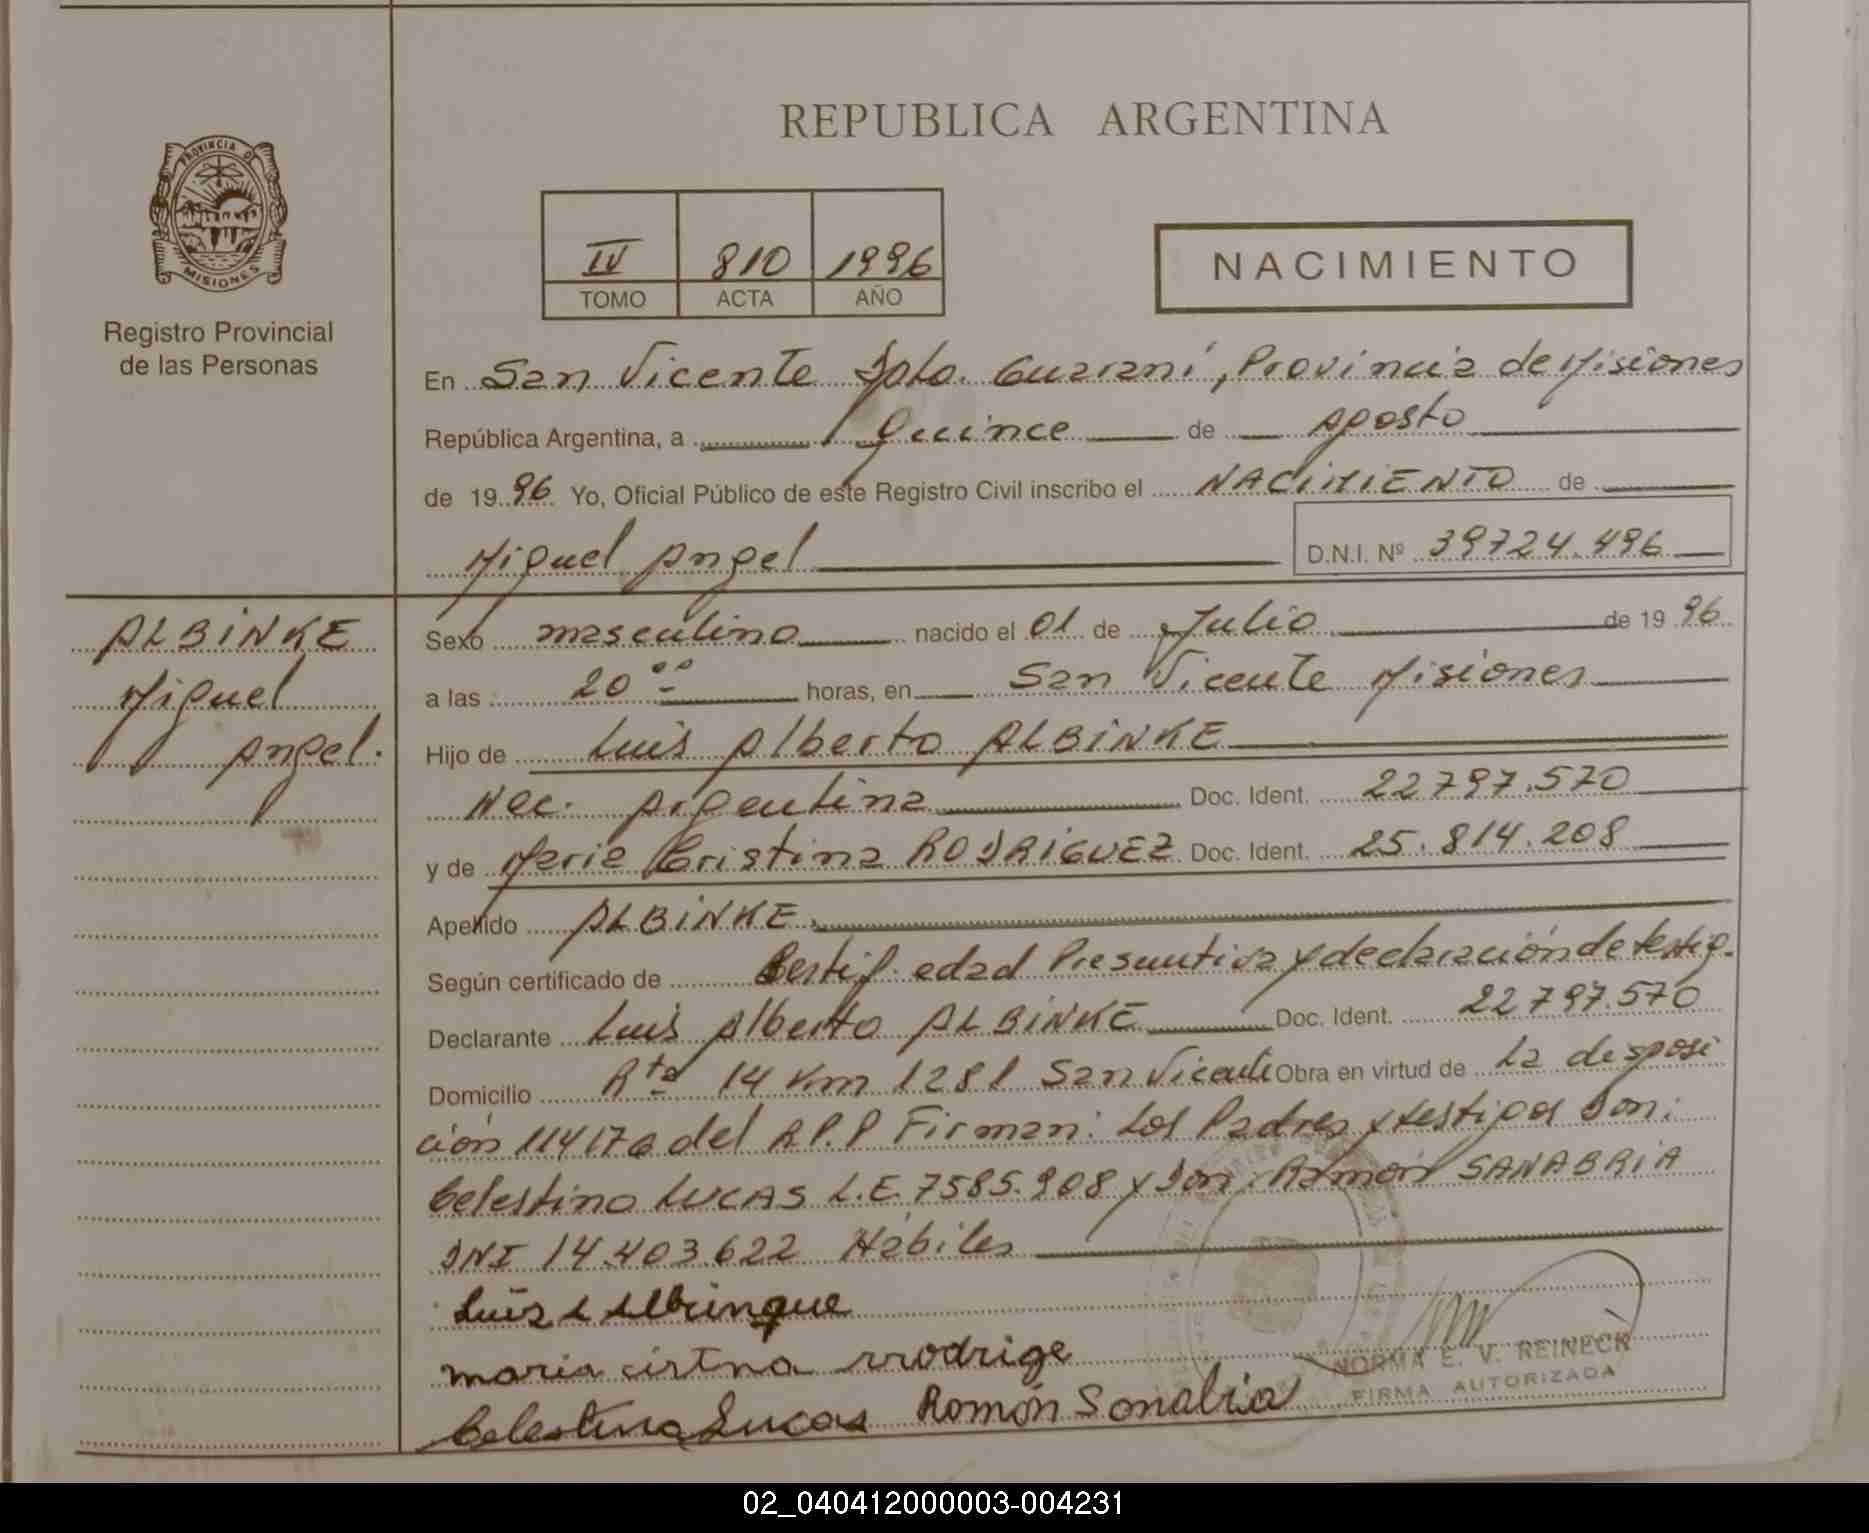 REPUBLICA ARGENTINA
PROVINCIA DE
MISIONES
Registro Provincial
de las Personas
IV 810 1996
TOMO ACTA AÑO
NACIMIENTO
En San Vicente Dpto. Guaraní, Provincia de Misiones
República Argentina, a Quince de Agosto
de 1996 Yo, Oficial Público de este Registro Civil inscribo el NACIMIENTO de
Miguel Angel D.N.I. Nº 39724.496
ALBINKE
Miguel
Angel.
Sexo masculino nacido el 01 de Julio de 1996
a las 20°° horas, en San Vicente Misiones
Hijo de Luis Alberto ALBINKE
Nac. Argentina Doc. Ident. 22797.570
y de Maria Cristina RODRIGUEZ Doc. Ident. 25.814.208
Apellido ALBINKE
Según certificado de Certif. edad Presuntiva y declaración de testig.
Declarante Luis Alberto ALBINKE Doc. Ident. 22797.570
Domicilio Rta 14 Km 1281 San Vicente Obra en virtud de La disposi
ción del R.P.P Firman: Los Padres y testigos Don:
Celestino LUCAS L.E. 7585.908 y Don: Ramón SANABRIA
DNI 14.403.622 Hábiles
Luis A Albinque
maria cistna rrodrige
Celestino Lucas Ramón Sanabria
NORMA E. V. REINECK
FIRMA AUTORIZADA
02_040412000003-004231